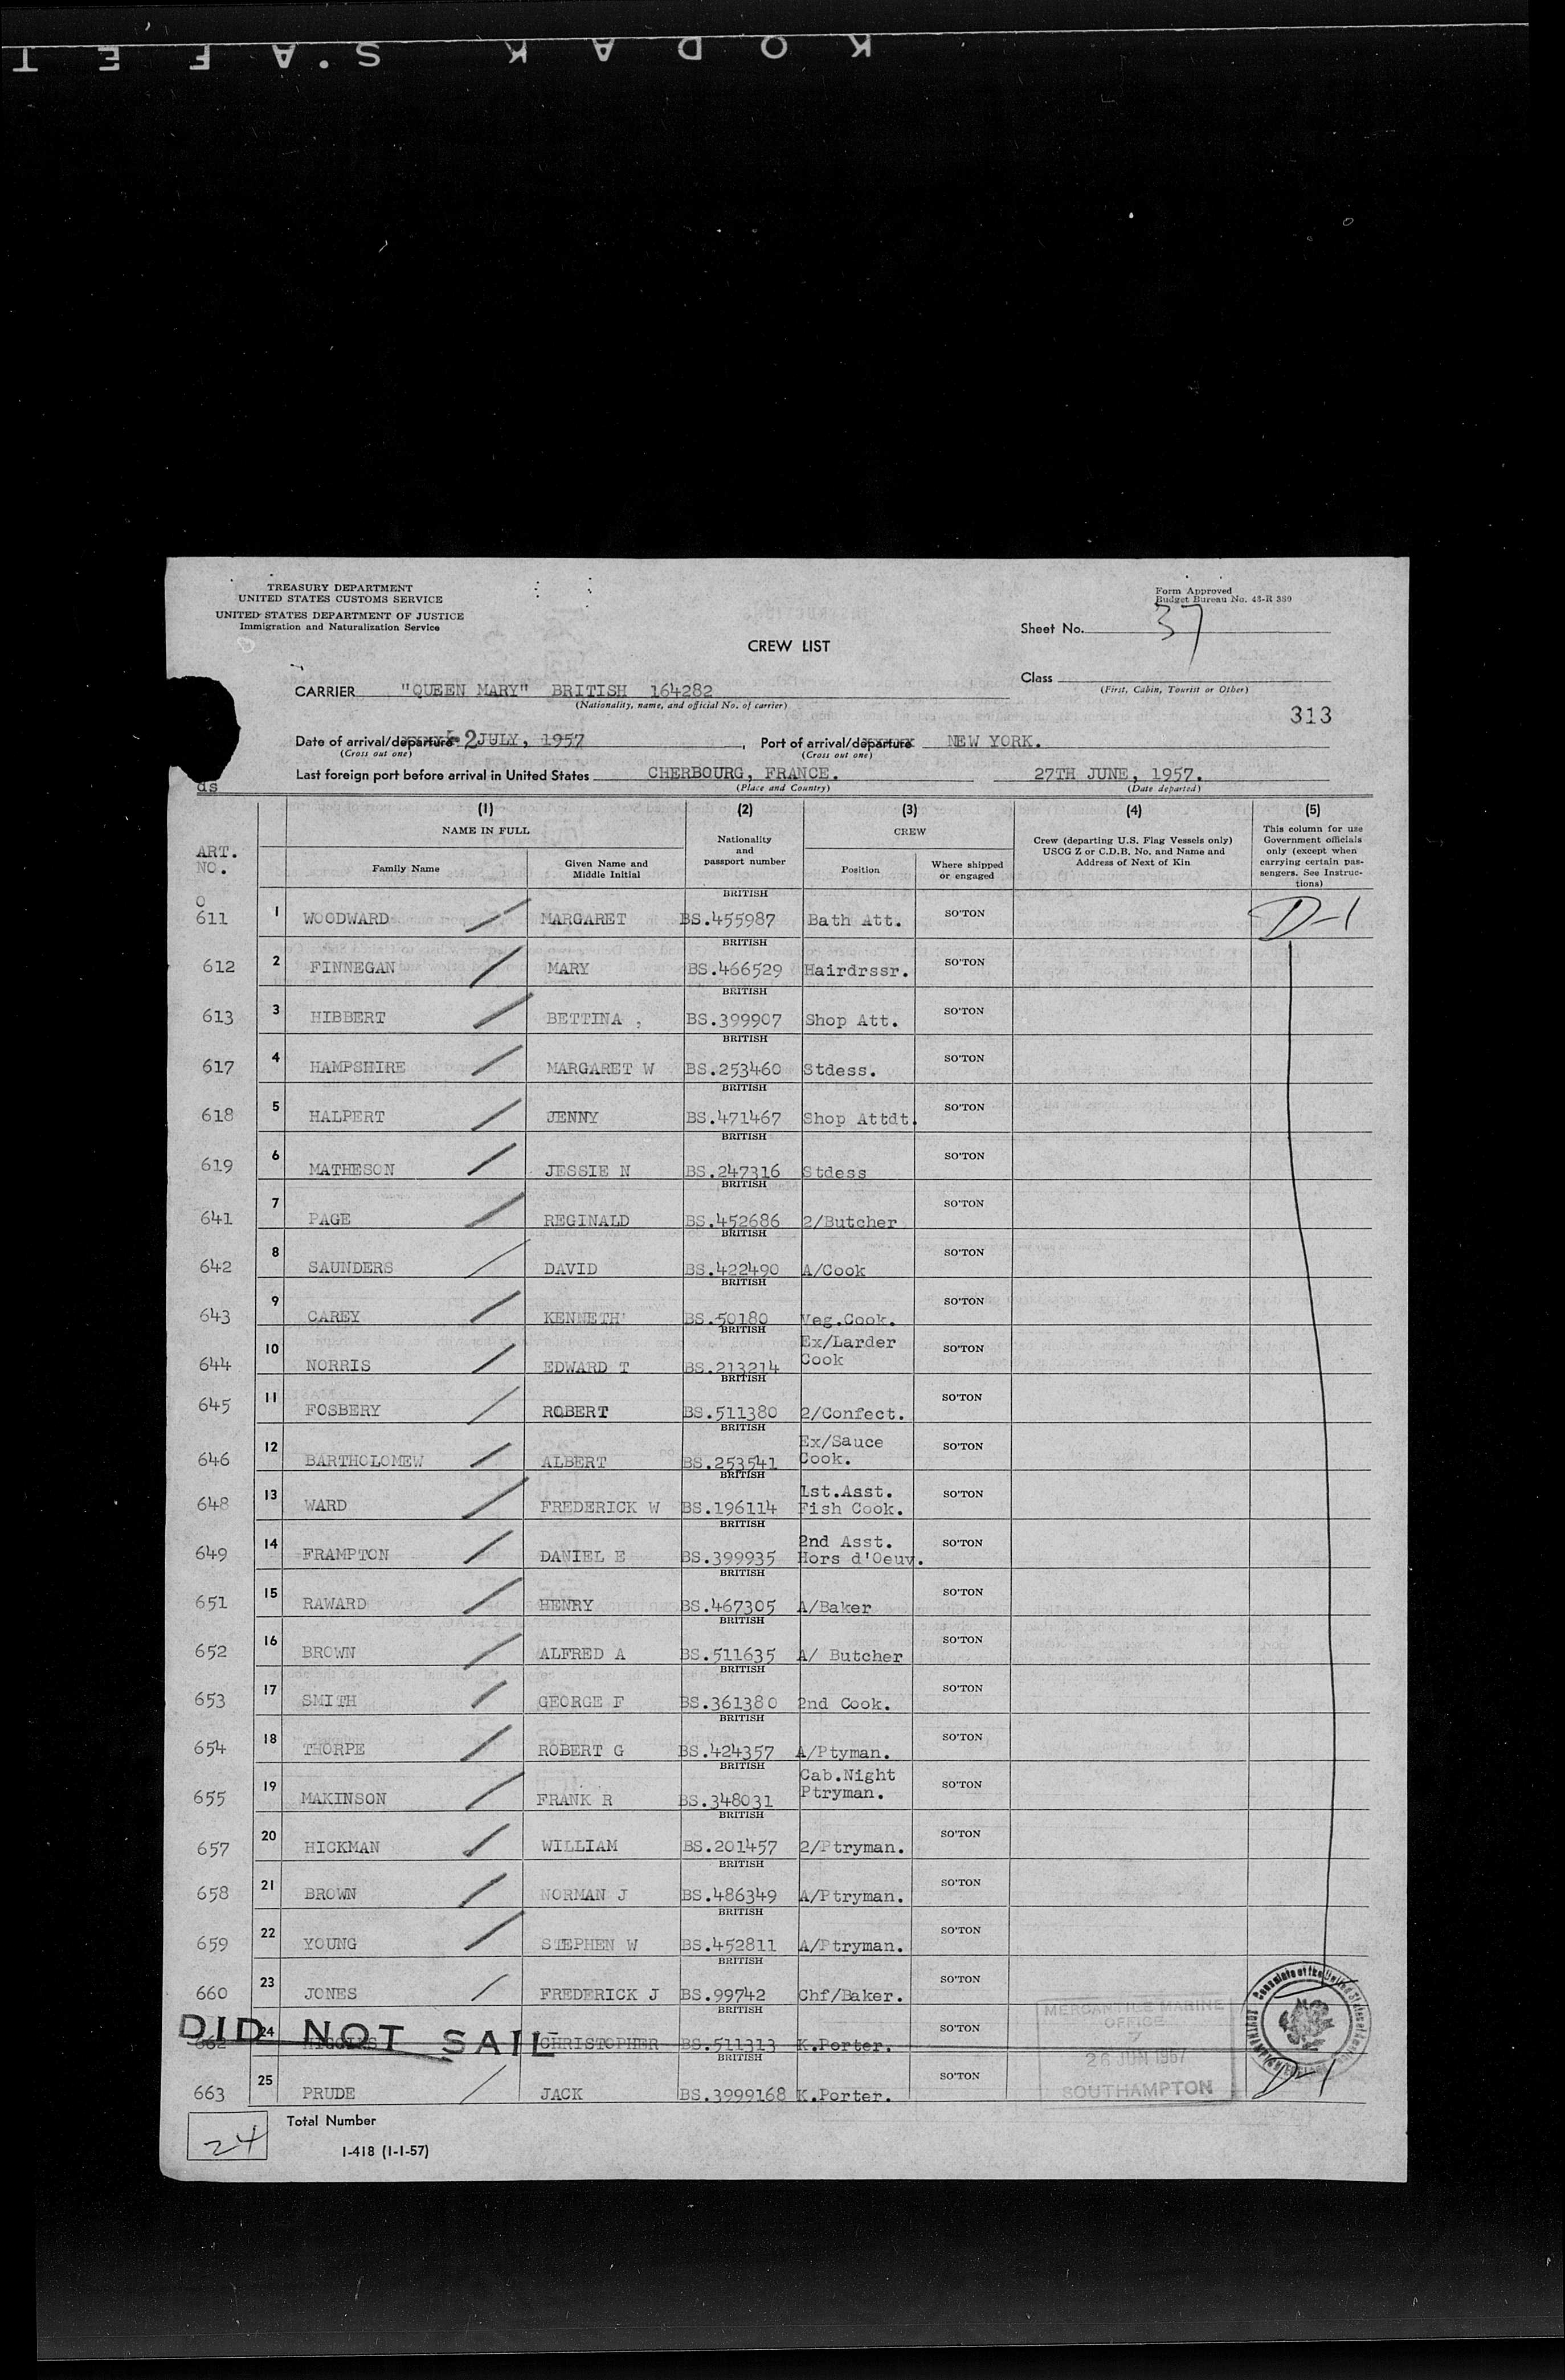 KODAK SAFET
TREASURY DEPARTMENT
UNITED STATES CUSTOMS SERVICE
UNITED STATES DEPARTMENT OF JUSTICE
Immigration and Naturalization Service
Form Approved
Budget Bureau No. 43-R 389
Sheet No. 37
CREW LIST
CARRIER "QUEEN MARY" BRITISH 164282
(Nationality, name, and official No. of carrier)
Class
(First, Cabin, Tourist or Other)
313
Date of arrival/departure 2 JULY, 1957, Port of arrival/departure NEW YORK.
(Cross out one) (Cross out one)
Last foreign port before arrival in United States CHERBOURG, FRANCE. 27TH JUNE, 1957.
(Place and Country) (Date departed)
ds
ART. NO. (1) NAME IN FULL Family Name Given Name and Middle Initial (2) Nationality and passport number (3) CREW Position Where shipped or engaged (4) Crew (departing U.S. Flag Vessels only) USCG Z or C.D.B. No. and Name and Address of Next of Kin (5) This column for use Government officials only (except when carrying certain passengers. See Instructions)
611 1 WOODWARD MARGARET BRITISH BS.455987 Bath Att. SO'TON D-1
612 2 FINNEGAN MARY BRITISH BS.466529 Hairdrssr. SO'TON
613 3 HIBBERT BETTINA , BRITISH BS.399907 Shop Att. SO'TON
617 4 HAMPSHIRE MARGARET W BRITISH BS.253460 Stdess. SO'TON
618 5 HALPERT JENNY BRITISH BS.471467 Shop Attdt. SO'TON
619 6 MATHESON JESSIE N BRITISH BS.247316 Stdess SO'TON
641 7 PAGE REGINALD BRITISH BS.452686 2/Butcher SO'TON
642 8 SAUNDERS DAVID BRITISH BS.422490 A/Cook SO'TON
643 9 CAREY KENNETH BRITISH BS.50180 Veg.Cook. SO'TON
644 10 NORRIS EDWARD T BRITISH BS.213214 Ex/Larder Cook SO'TON
645 11 FOSBERY ROBERT BRITISH BS.511380 2/Confect. SO'TON
646 12 BARTHOLOMEW ALBERT BRITISH BS.253541 Ex/Sauce Cook. SO'TON
648 13 WARD FREDERICK W BRITISH BS.196114 1st.Asst. Fish Cook. SO'TON
649 14 FRAMPTON DANIEL E BRITISH BS.399935 2nd Asst. Hors d'Oeuv. SO'TON
651 15 RAWARD HENRY BRITISH BS.467305 A/Baker SO'TON
652 16 BROWN ALFRED A BRITISH BS.511635 A/ Butcher SO'TON
653 17 SMITH GEORGE F BRITISH BS.361380 2nd Cook. SO'TON
654 18 THORPE ROBERT G BRITISH BS.424357 A/Ptyman. SO'TON
655 19 MAKINSON FRANK R BRITISH BS.348031 Cab.Night Ptryman. SO'TON
657 20 HICKMAN WILLIAM BRITISH BS.201457 2/Ptryman. SO'TON
658 21 BROWN NORMAN J BRITISH BS.486349 A/Ptryman. SO'TON
659 22 YOUNG STEPHEN W BRITISH BS.452811 A/Ptryman. SO'TON
660 23 JONES FREDERICK J BRITISH BS.99742 Chf/Baker. SO'TON
DID NOT SAIL
662 24 HIGGINS CHRISTOPHER BRITISH BS.511313 K.Porter. SO'TON
663 25 PRUDE JACK BRITISH BS.3999168 K.Porter. SO'TON D-1
MERCANTILE MARINE
OFFICE
7
26 JUN 1957
SOUTHAMPTON
24 Total Number
I-418 (1-1-57)